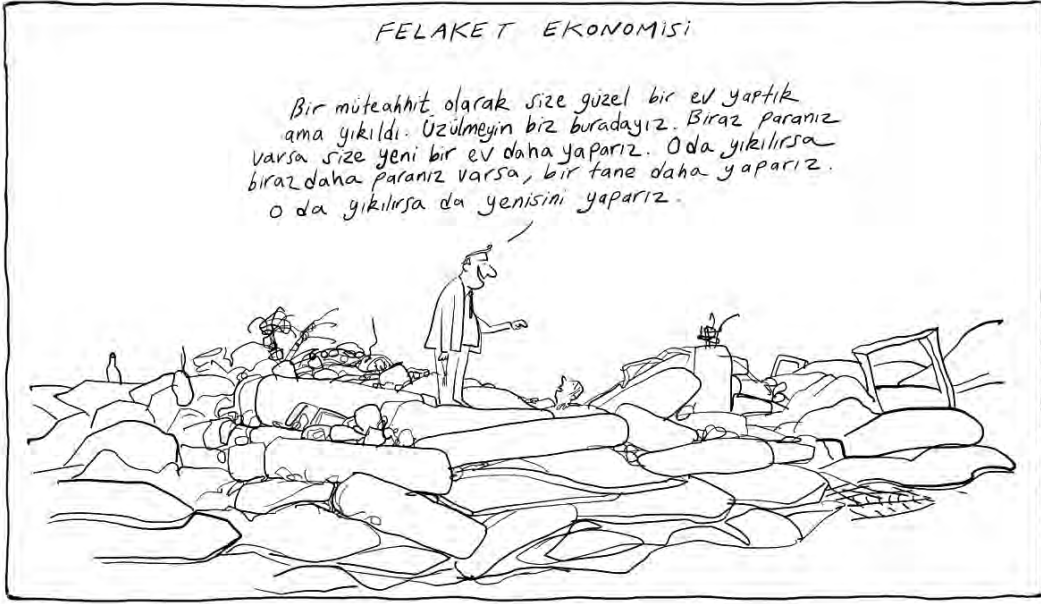 FELAKET EKONOMİSİ
Bir müteahhit olarak size güzel bir ev yaptık
ama yıkıldı. Üzülmeyin biz buradayız. Biraz paranız
varsa size yeni bir ev daha yaparız. O da yıkılırsa
biraz daha paranız varsa, bir tane daha yaparız.
O da yıkılırsa da yenisini yaparız.